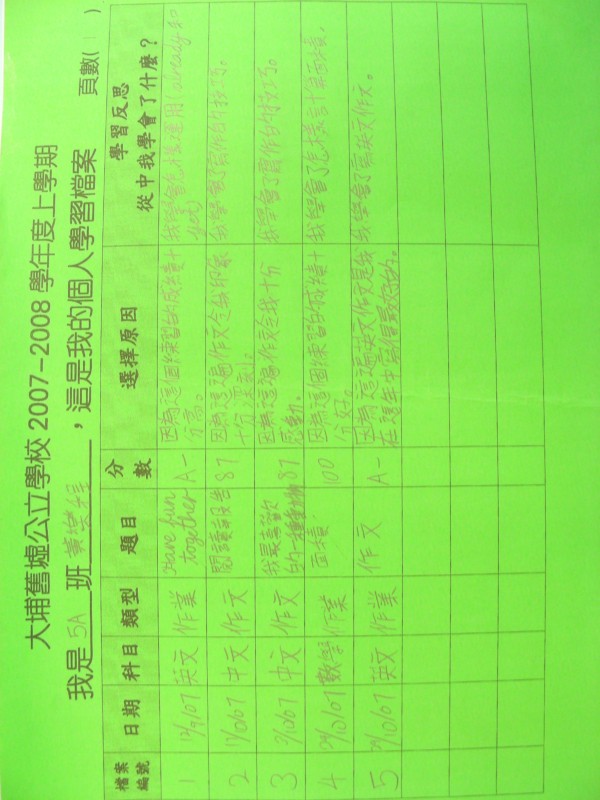 大埔舊墟公立學校 2007-2008 學年度上學期
我是 5A 班 黃樂 ，這是我的個人學習檔案 頁數( 1 )
檔案編號 日期 科目 類型 題目 分數 選擇原因 學習反思 從中我學會了什麼？
1 英文 作業 Have fun together A- 因為這個練習的成績十分高。 我學會怎樣運用 already 和
2 中文 作文 閱讀報告 87 因為這篇作文令我 十分 我學會了寫作的技巧。
3 中文 作文 我最喜歡的一種 87 因為這篇作文令我十分感動。 我學會了寫作的技巧。
4 29/10/07 數學 作業 面積 100 因為這個練習的成績十分好。 我學會了怎樣計算面積。
5 /10/07 英文 作業 作文 A- 因為這篇英文作文是我在這年中寫得最好的。 我學會了寫英文作文。